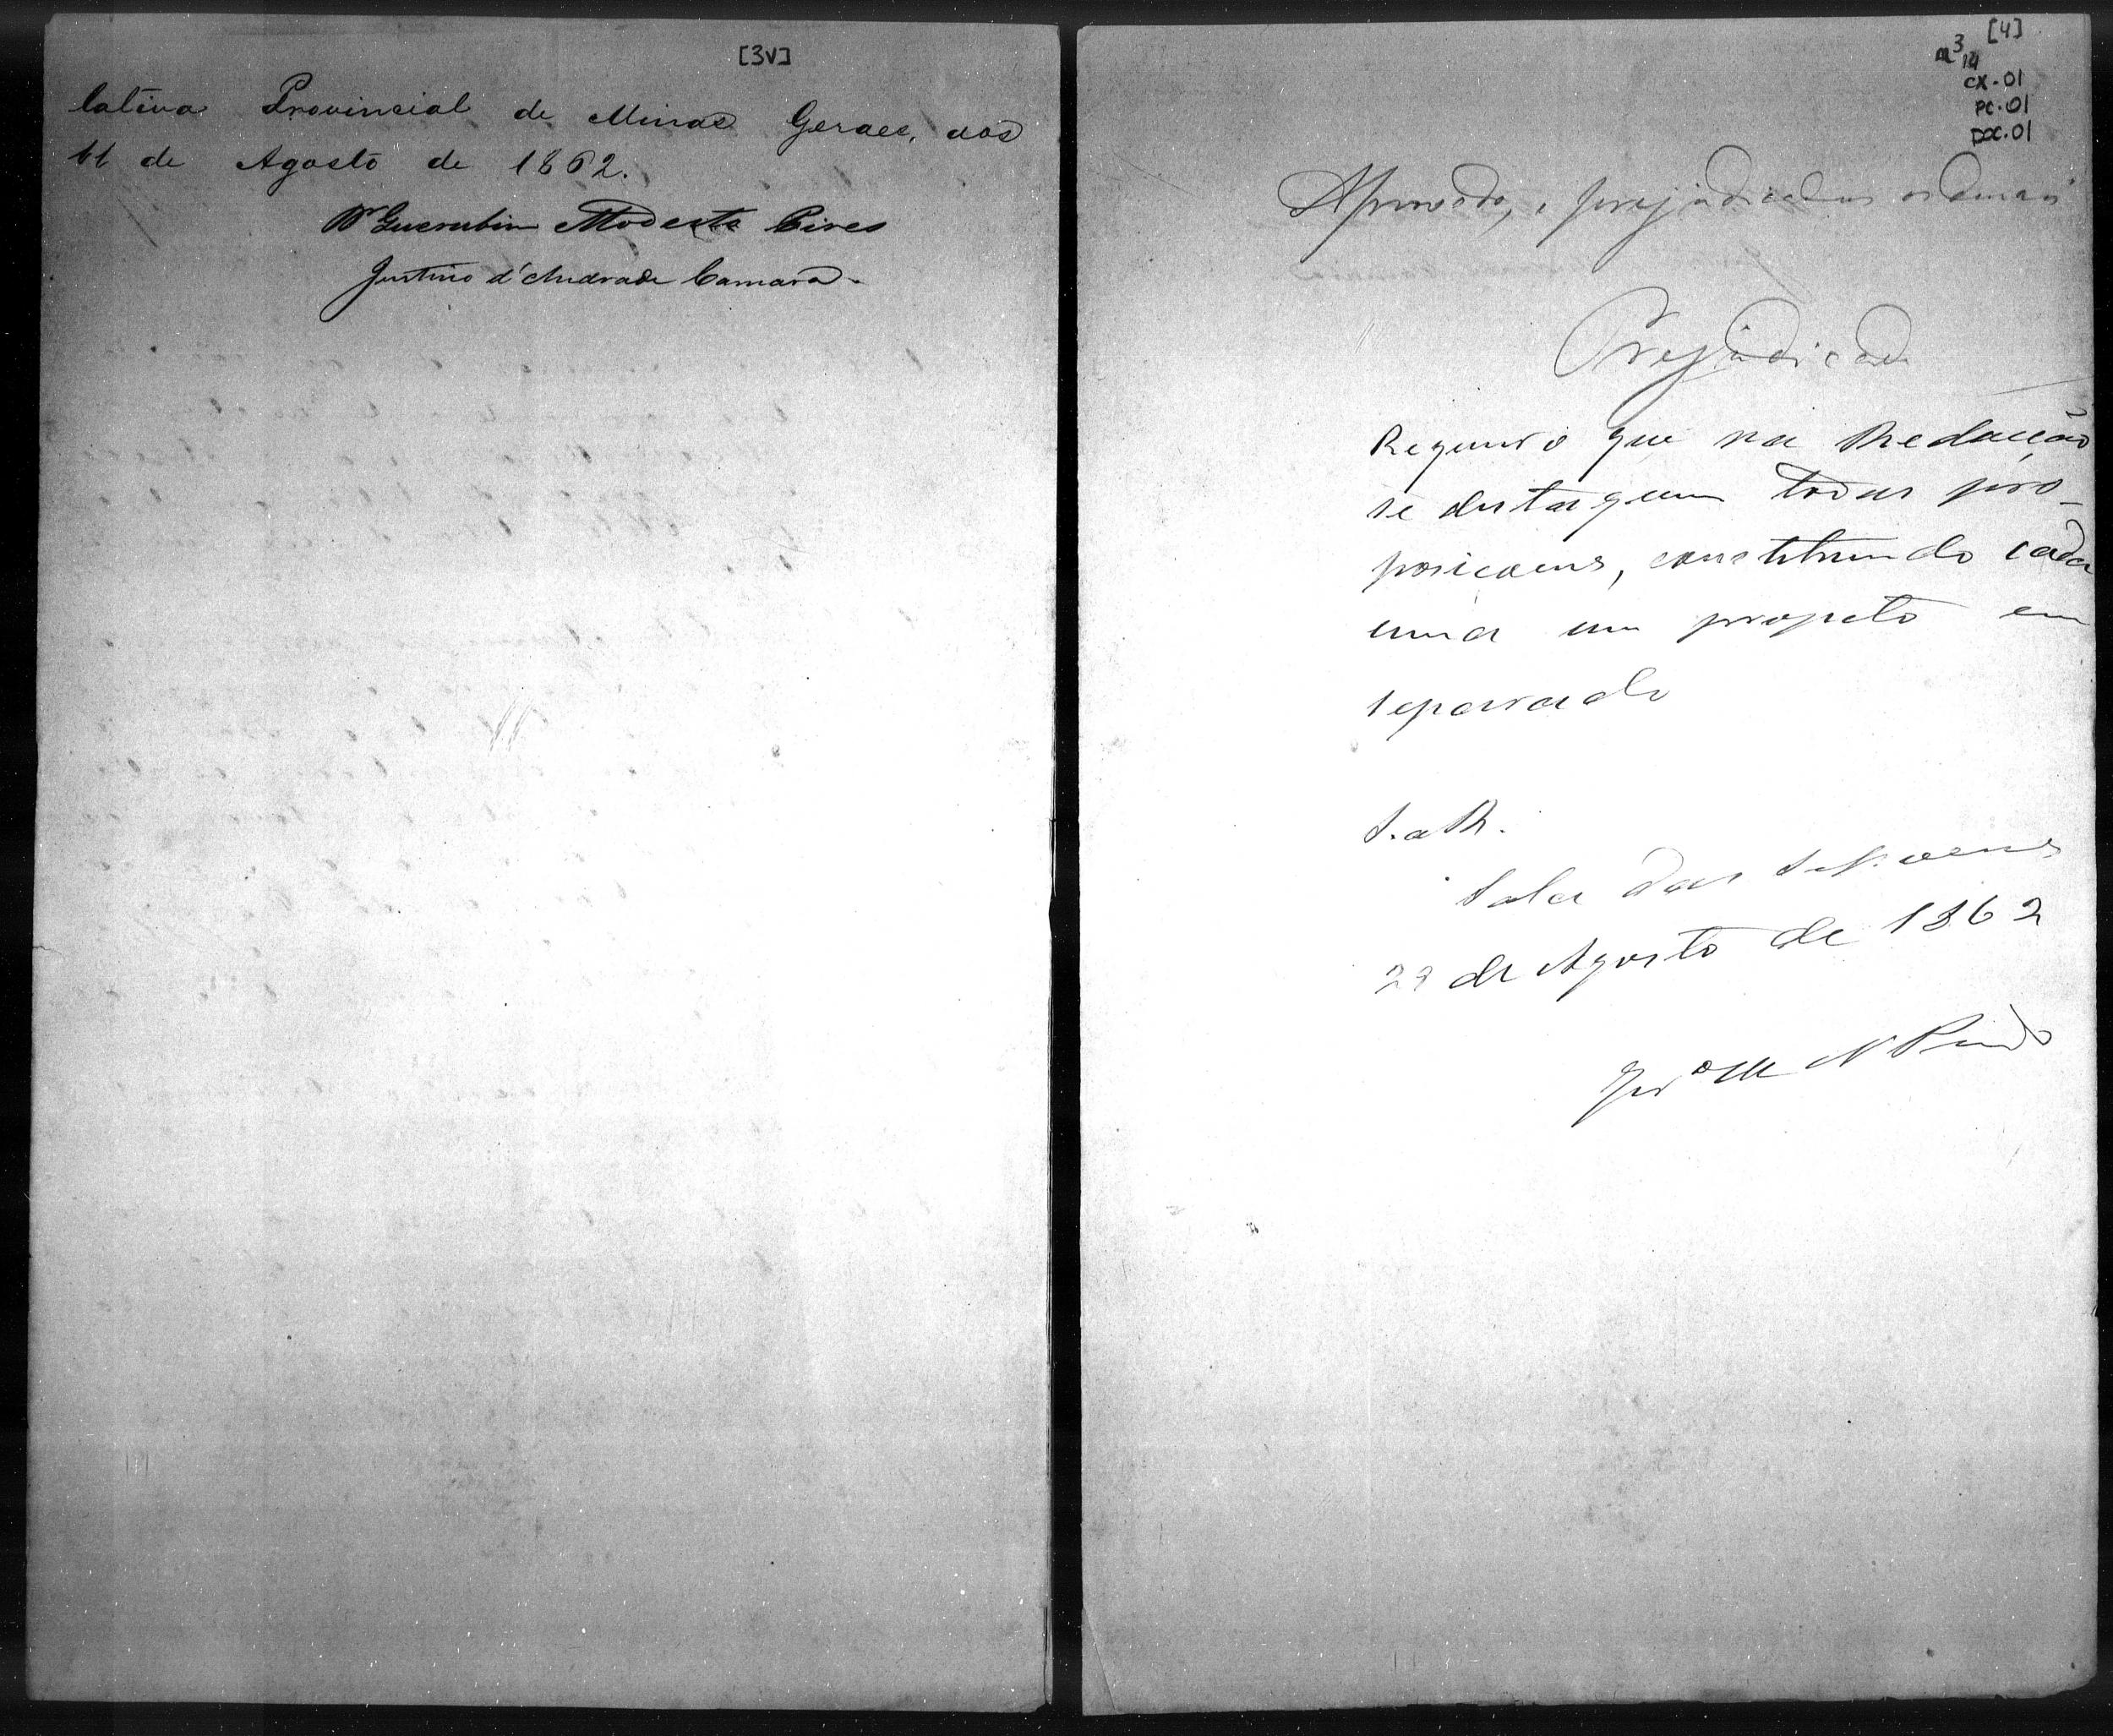 [3V]
lativa Provincial de Minas Geraes, aos
11 de Agosto de 1862.
Dr Querubim Modesto Pires
Justino d'Andrade Camara.
[4]
3
14
CX-01
PC-01
DOC.01
Approvado, e prejudicados os demais
Prejudicado
Requeiro que na Redacção
se destaquem todas pro-
posicoens, constituindo cada
uma um projeto em
separado
S. a R.
Sala das Sessoens
de Agosto de 1862